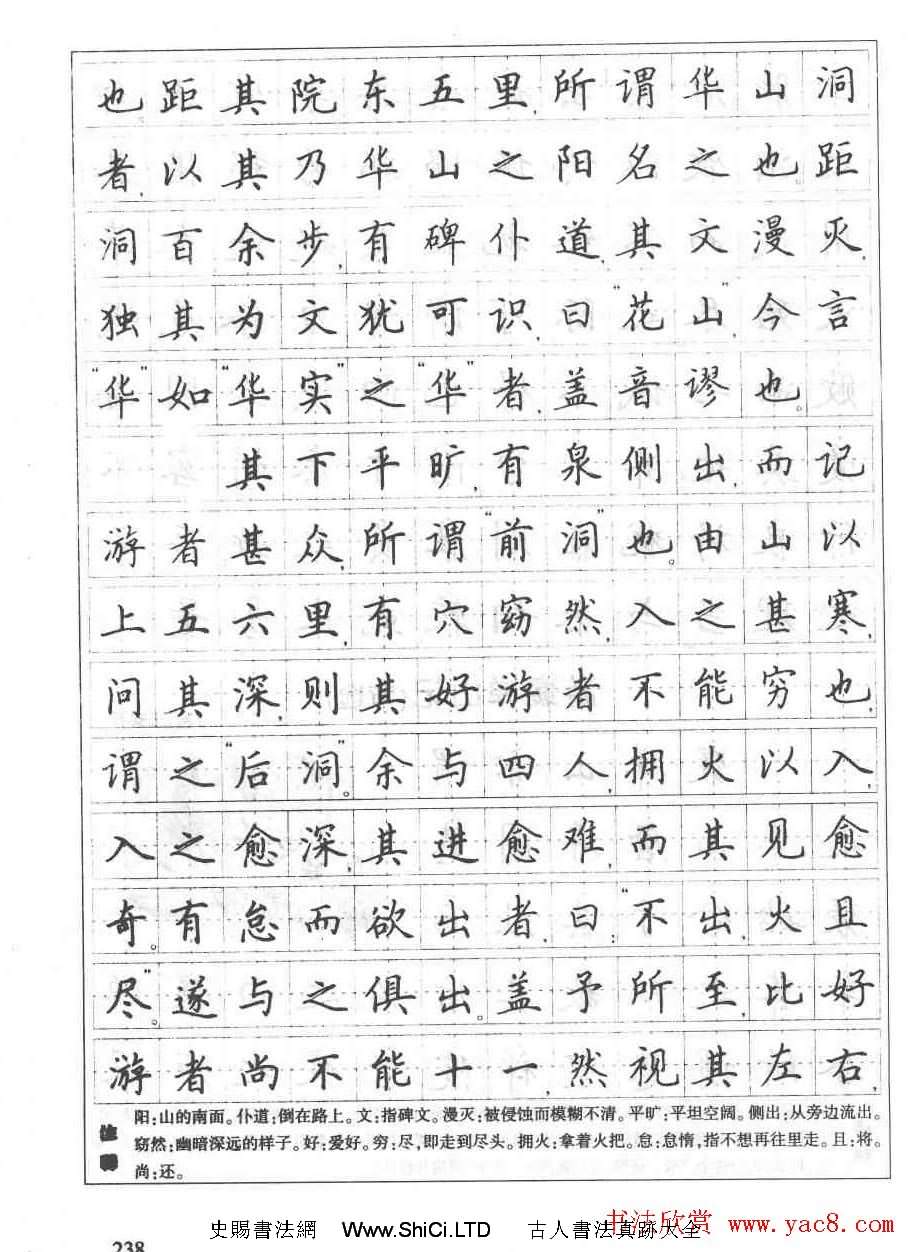 也距其院东五里,所谓华山洞
者,以其乃华山之阳名之也。距
洞百余步,有碑仆道,其文漫灭,
独其为文犹可识,曰“花山”,今言
“华”如“华实”之“华”者,盖音谬也。
其下平旷,有泉侧出,而记
游者甚众,所谓“前洞”也。由山以
上五六里,有穴窈然,入之甚寒,
问其深,则其好游者不能穷也,
谓之“后洞”。余与四人,拥火以入,
入之愈深,其进愈难,而其见愈
奇。有怠而欲出者,曰:“不出,火且
尽”。遂与之俱出。盖予所至,比好
游者尚不能十一,然视其左右,
阳:山的南面。仆道:倒在路上。文:指碑文。漫灭:被侵蚀而模糊不清。平旷:平坦空阔。侧出:从旁边流出。
窈然:幽暗深远的样子。好:爱好。穷:尽,即走到尽头。拥火:拿着火把。怠:怠惰,指不想再往里走。且:将。
尚:还。
史賜書法網 Www.ShiCi.LTD 古人書法真跡大全
书法欣赏 www.yac8.com
238